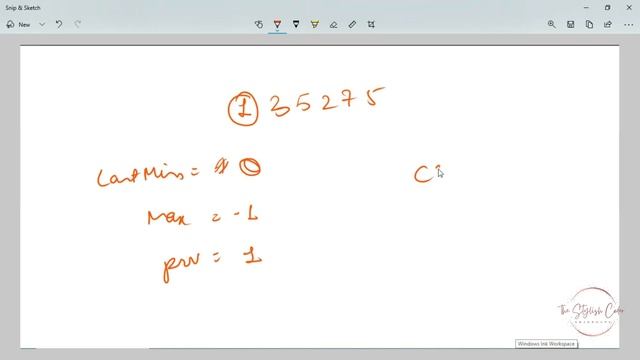 Snip & Sketch
New
1 3 5 2 7 5
LastMin = 0
Max = -1
prv = 1
C
The Stylish Coder
Windows Ink Workspace